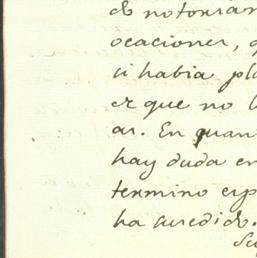 de notorian
ocaciones,
si habia pl
es que no l
ar. En quan
hay duda en
termino esp
ha suredido.
Su